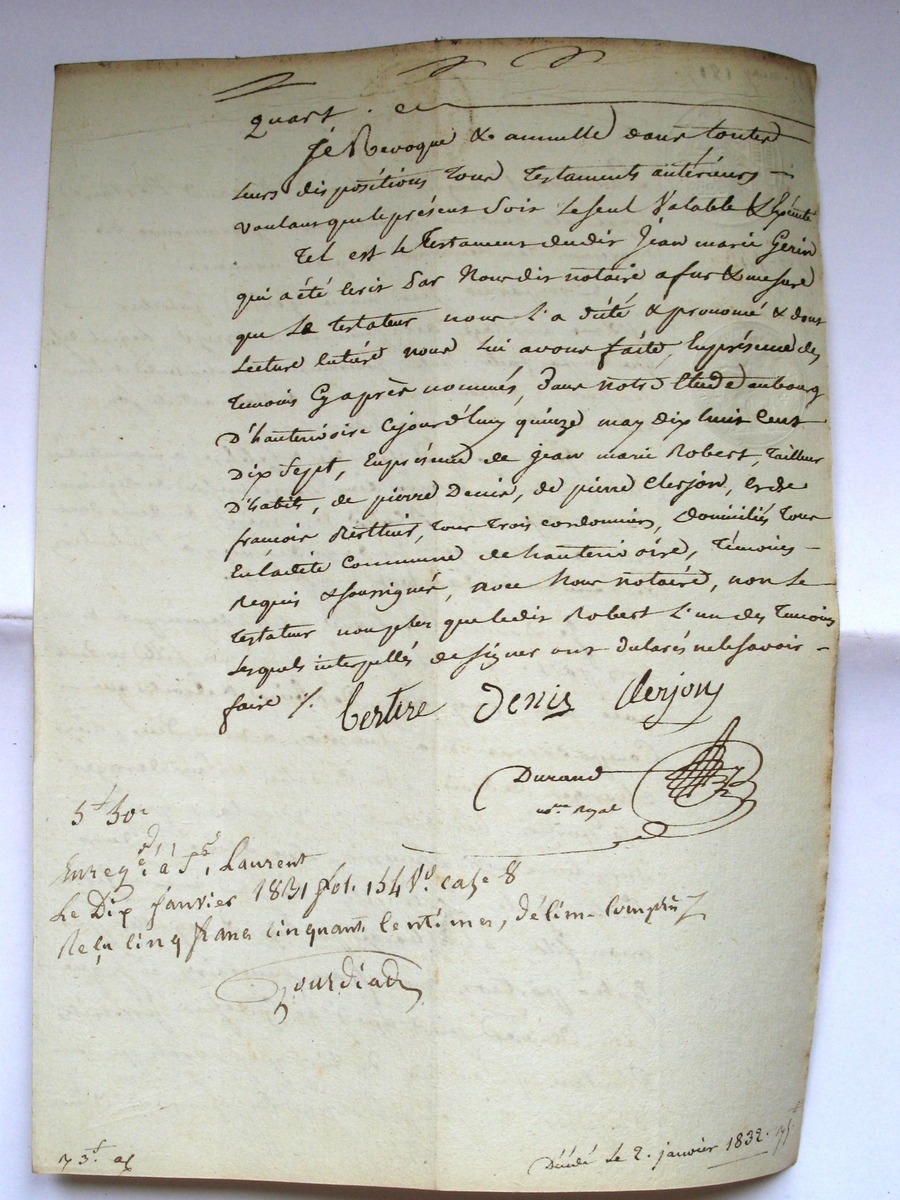 quart.
Je Revoque & annulle dans toutes
leurs dispositions tous Testaments antérieurs -
voulant que le présent soit le seul Valable & Exécuté
Tel est le Testament dudit Jean marie Gerin
qui a été écrit Par Nous dit notaire a fur & mesure
que Le testateur nous l'a dicté & prononcé & dont
Lecture entiere nous lui avons faite, En présence des
temoins Cy après nommés, Dans notre Etude au bourg
D'hauterivoire Cejourd'huy quinze may dix huit Cent
Dix Sept, En présence de jean marie Robert, Tailleur
D'habits, de pierre Denis, de pierre Clerjon, et de
françois Berthier, tous trois cordonniers, Domiciliés tous
En ladite Commune de hauterivoire, Témoins -
Requis & soussignés, avec Nous notaire, non le
testateur non plus que ledit Robert l'un des Temoins
Lesquels interpellés de signer ont déclarés ne le savoir -
faire %.
Bertire Denis Clerjon
Durand
no.re Royal
5f 50c
Enreg.é à St. Laurent
Le Dix Janvier 1831 fol. 154 Vo. case 8
Reçu cinq francs cinquante centimes, décime compris
Jourdiad
Décédé le 2. janvier 1832.